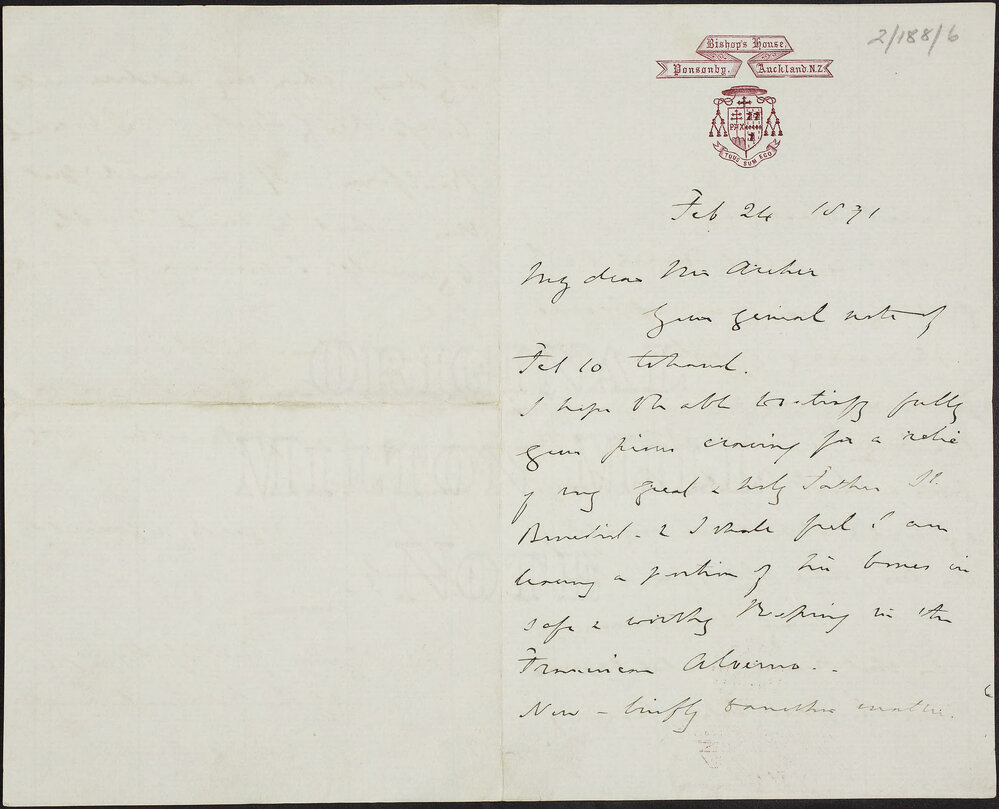 2/188/6
Bishop's House,
Ponsonby. Auckland. N.Z.
PAX
TUUS SUM EGO
Feb 24 1891
My dear Mr Archer
Your genial note of
Feb 10 to hand.
I hope to be able to satisfy fully
your pious craving for a relic
of my great & holy Father St.
Benedict - & I shall feel I am
leaving a portion of his bones in
safe & worthy keeping in the
Franciscan Alverno..
Now - briefly to another matter.